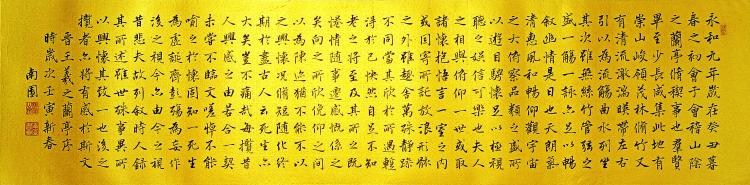 永和九年歲在癸丑暮
春之初會于會稽山陰
之蘭亭脩稧事也羣賢
畢至少長咸集此地有
崇山峻領茂林脩竹又
有清流激湍暎帶左右
引以為流觴曲水列坐
其次雖無絲竹管弦之
盛一觴一詠亦足以暢
敘幽情是日也天朗氣
清惠風和暢仰觀宇宙
之大俯察品類之盛所
以遊目騁懷足以極視
聽之娛信可樂也夫人
之相與俯仰一世或取
諸懷抱悟言一室之內
或因寄所託放浪形骸
之外雖趣舍萬殊靜躁
不同當其欣於所遇暫
得於己怏然自足不知
老之將至及其所之既
惓情隨事遷感慨係之
矣向之所欣俛仰之間
以為陳迹猶不能不以
之興懷況脩短隨化終
期於盡古人云死生亦
大矣豈不痛哉每攬昔
人興感之由若合一契
未嘗不臨文嗟悼不能
喻之於懷固知一死生
為虛誕齊彭殤為妄作
後之視今亦由今之視
昔悲夫故列敘時人錄
其所述雖世殊事異所
以興懷其致一也後之
攬者亦將有感於斯文
晉王羲之蘭亭序
時歲次壬寅新春
南園